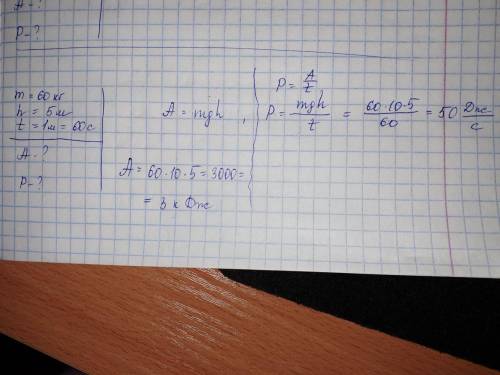 A - ?
P - ?
m = 60 кг
h = 5 м
t = 1 м = 60 с
A - ?
P - ?
A = mgh ,
A = 60·10·5 = 3000 =
= 3 к Дж
P = A/t
P = mgh/t = 60·10·5/60 = 50 Дж/с